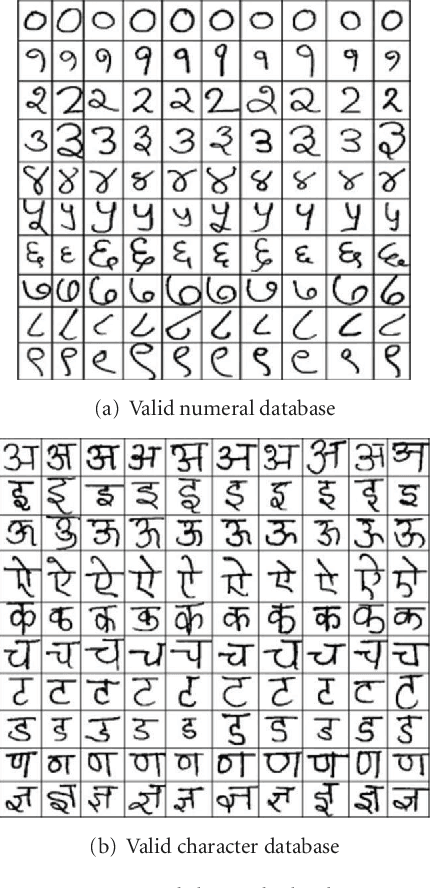 ० ० ० ० ० ० ० ० ० ०
१ १ १ १ १ १ १ १ १ १
२ २ २ २ २ २ २ २ २ २
३ ३ ३ ३ ३ ३ ३ ३ ३ ३
४ ४ ४ ४ ४ ४ ४ ४ ४ ४
५ ५ ५ ५ ५ ५ ५ ५ ५ ५
६ ६ ६ ६ ६ ६ ६ ६ ६ ६
७ ७ ७ ७ ७ ७ ७ ७ ७ ७
८ ८ ८ ८ ८ ८ ८ ८ ८ ८
९ ९ ९ ९ ९ ९ ९ ९ ९ ९
(a) Valid numeral database
अ अ अ अ अ अ अ अ अ अ
इ इ इ इ इ इ इ इ इ इ
ऊ ऊ ऊ ऊ ऊ ऊ ऊ ऊ ऊ ऊ
ऐ ऐ ऐ ऐ ऐ ऐ ऐ ऐ ऐ ऐ
क क क क क क क क क क
च च च च च च च च च च
ट ट ट ट ट ट ट ट ट ट
ड ड ड ड ड ड ड ड ड ड
ण ण ण ण ण ण ण ण ण ण
ज्ञ ज्ञ ज्ञ ज्ञ ज्ञ ज्ञ ज्ञ ज्ञ ज्ञ ज्ञ
(b) Valid character database